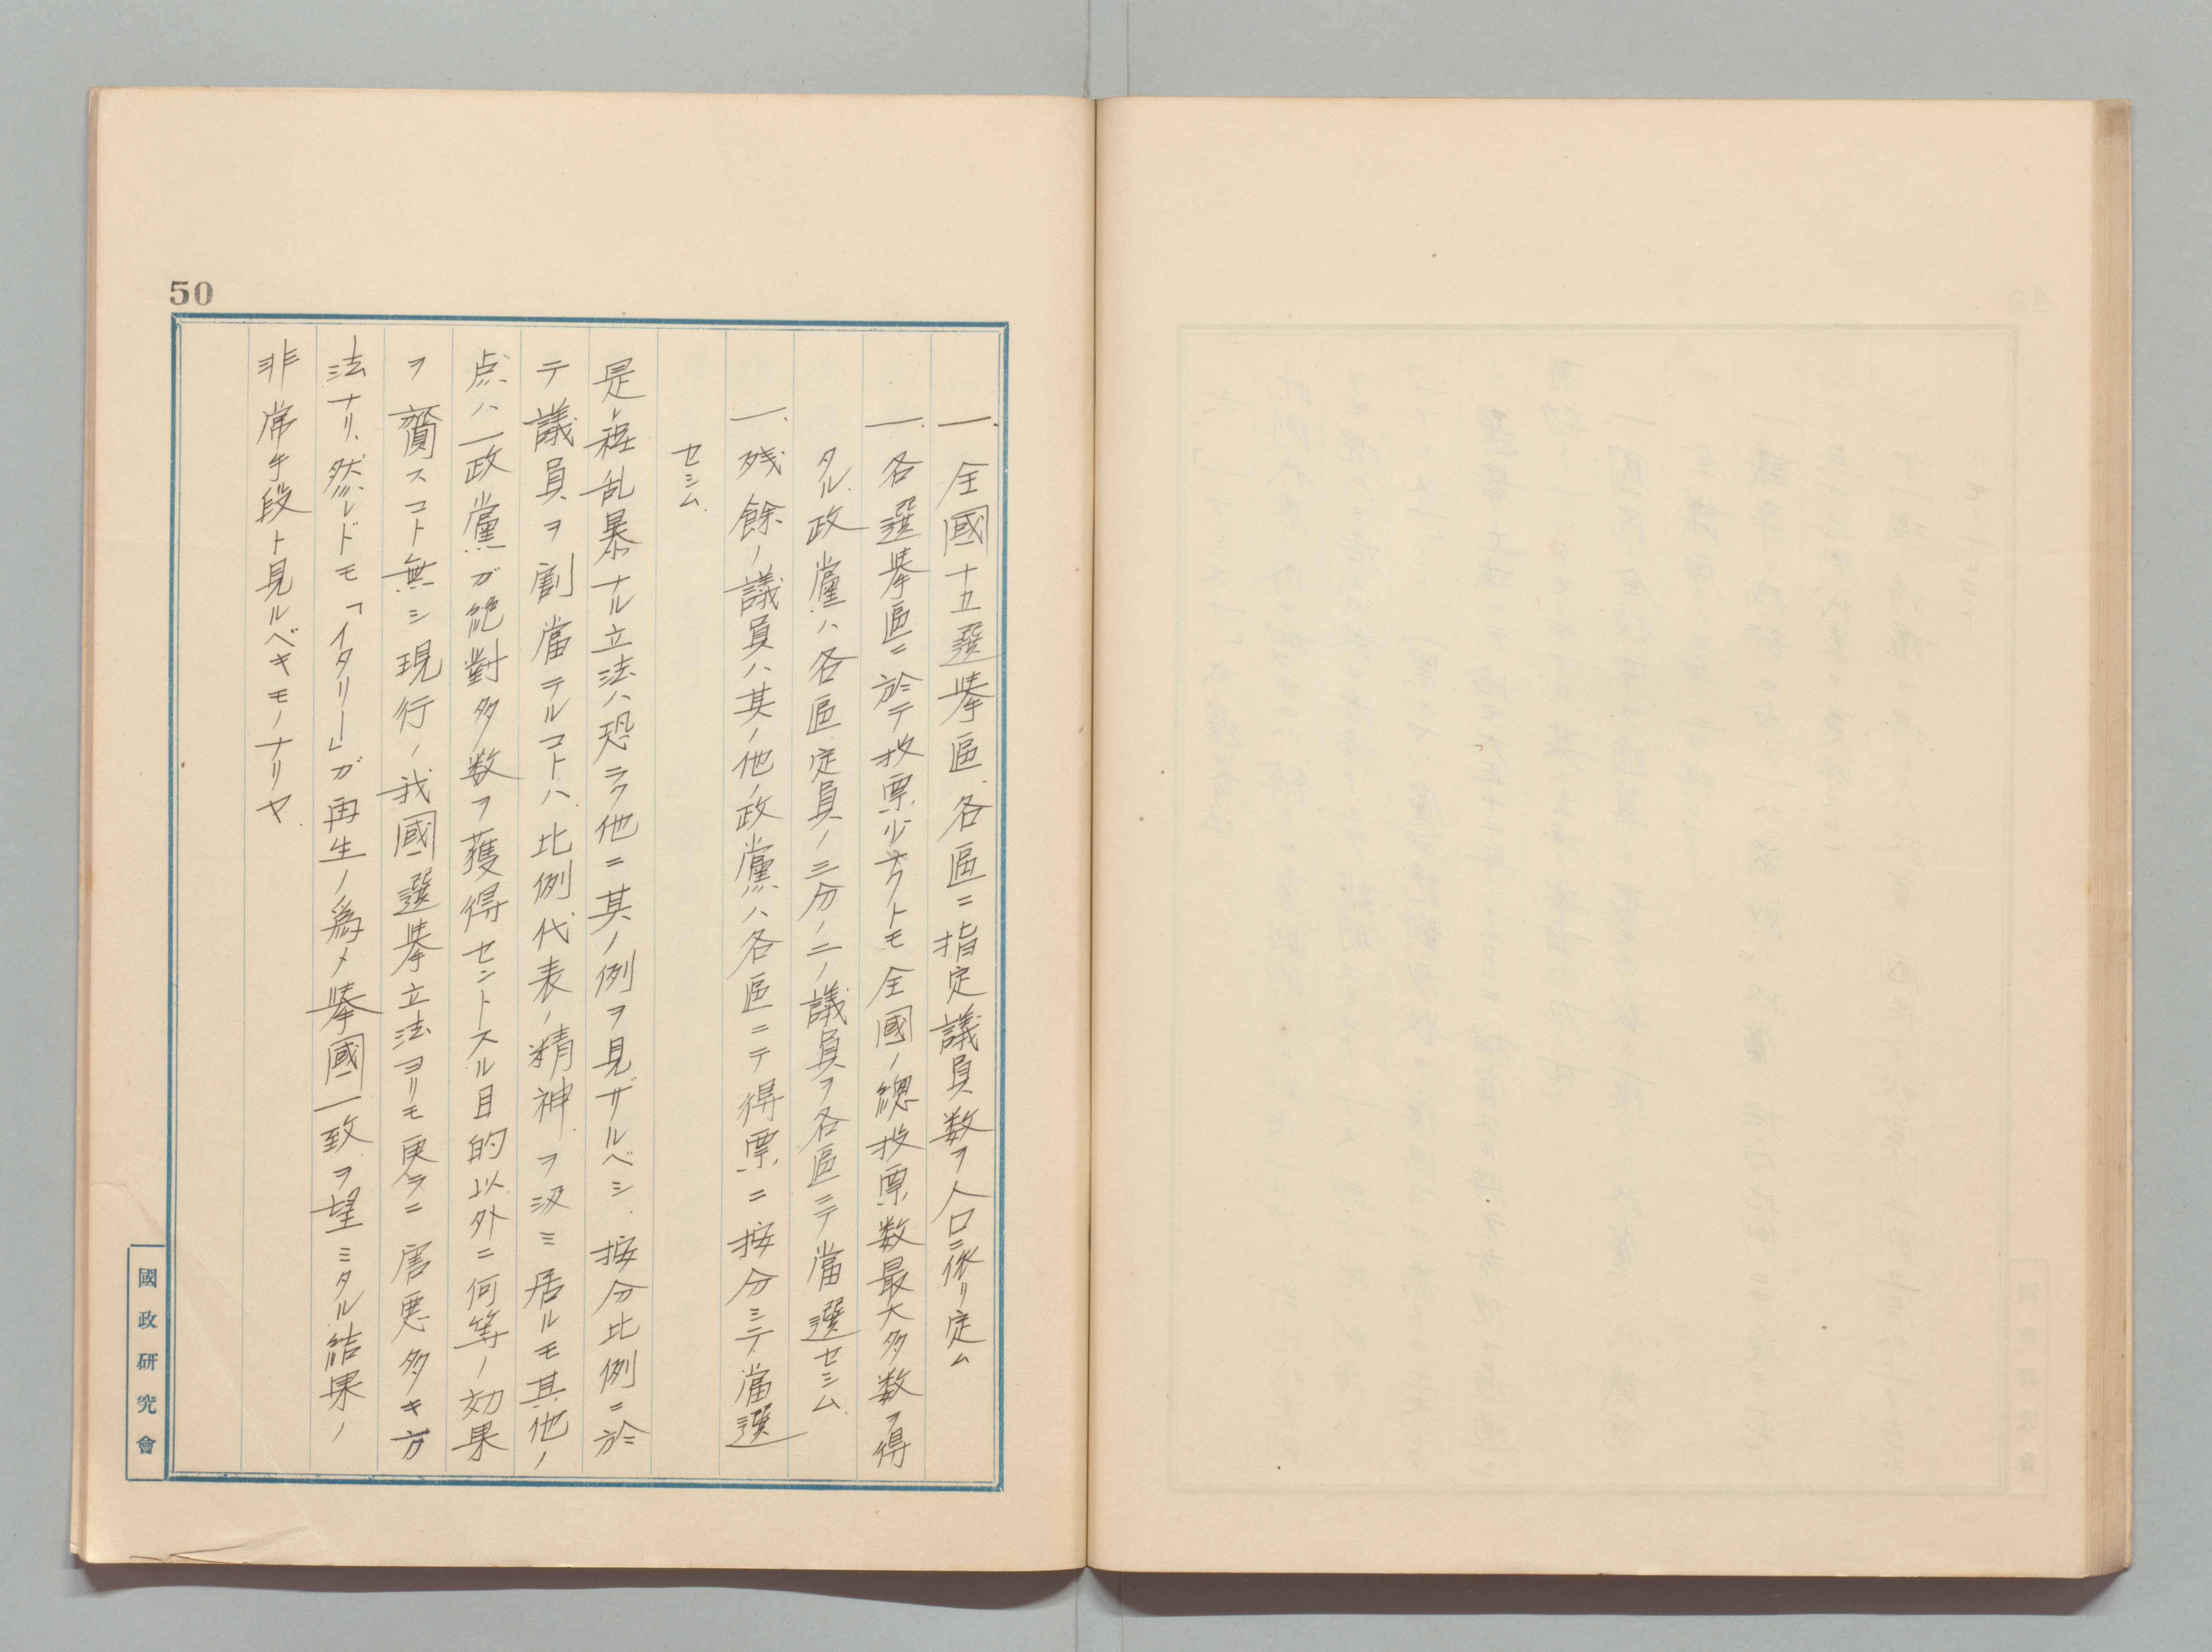 50
一、全國十五選挙區、各區ニ指定議員数ヲ人口ニ依リ定ム
一、各選挙區ニ於テ投票少ナクトモ全國ノ總投票数最大多数ヲ得
タル政黨ハ各區定員ノ三分ノ二ノ議員ヲ各區ニテ當選セシム、
一、残餘ノ議員ハ其ノ他ノ政黨ハ各區ニテ得票ニ按分シテ當選
セシム、
是レ程乱暴ナル立法ハ恐ラク他ニ其ノ例ヲ見ザルベシ、按分比例ニ於
テ議員ヲ割當テルコトハ、比例代表ノ精神ヲ汲ミ居ルモ其他ノ
点ハ一政黨ガ絶對多数ヲ獲得セントスル目的以外ニ何等ノ効果
ヲ齎スコト無シ現行ノ我國選挙立法ヨリモ更ラニ害悪多キ方
法ナリ、然レドモ「イタリー」ガ再生ノ為メ挙國一致ヲ望ミタル結果ノ
非常手段ト見ルベキモノナリヤ、
國政研究會